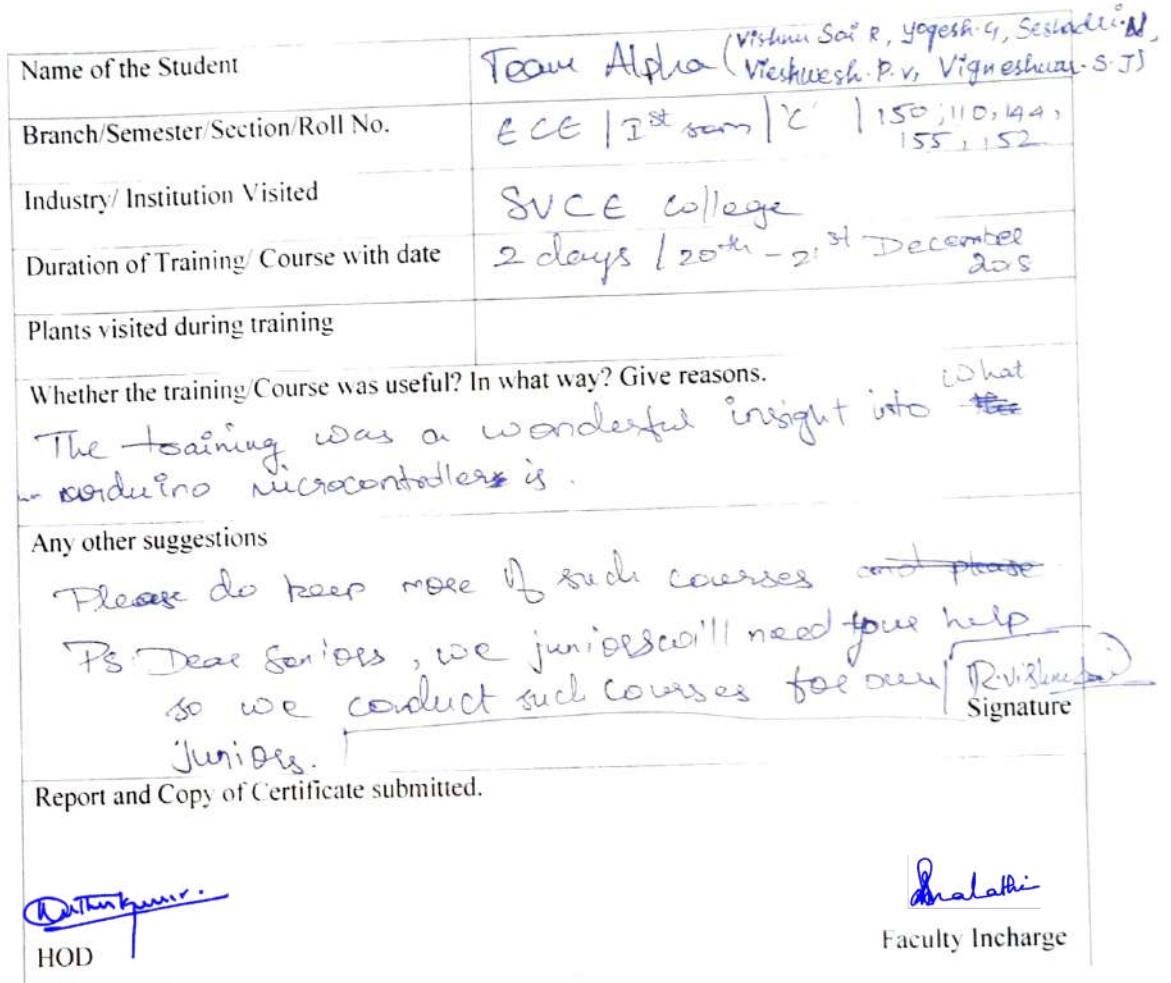 Name of the Student
Team Alpha (Vishnu Sai R, Yogesh.G, Seshadri.N,
Vieshwesh.P.V, Vigneshwar.S.J)
Branch/Semester/Section/Roll No.
ECE | Ist sem | 'C' | 150, 110, 144,
155, 152
Industry/ Institution Visited
SVCE college
Duration of Training/ Course with date
2 days / 20th - 21st December
2018
Plants visited during training
Whether the training/Course was useful? In what way? Give reasons.
The training was a wonderful insight into what
arduino microcontroller is.
Any other suggestions
Please do keep more of such courses and please
Ps: Dear Seniors, we juniors will need your help
so we conduct such courses for our
juniors.
R.Vishnu Sai
Signature
Report and Copy of Certificate submitted.
Muthukumar.
HOD
Malathi
Faculty Incharge